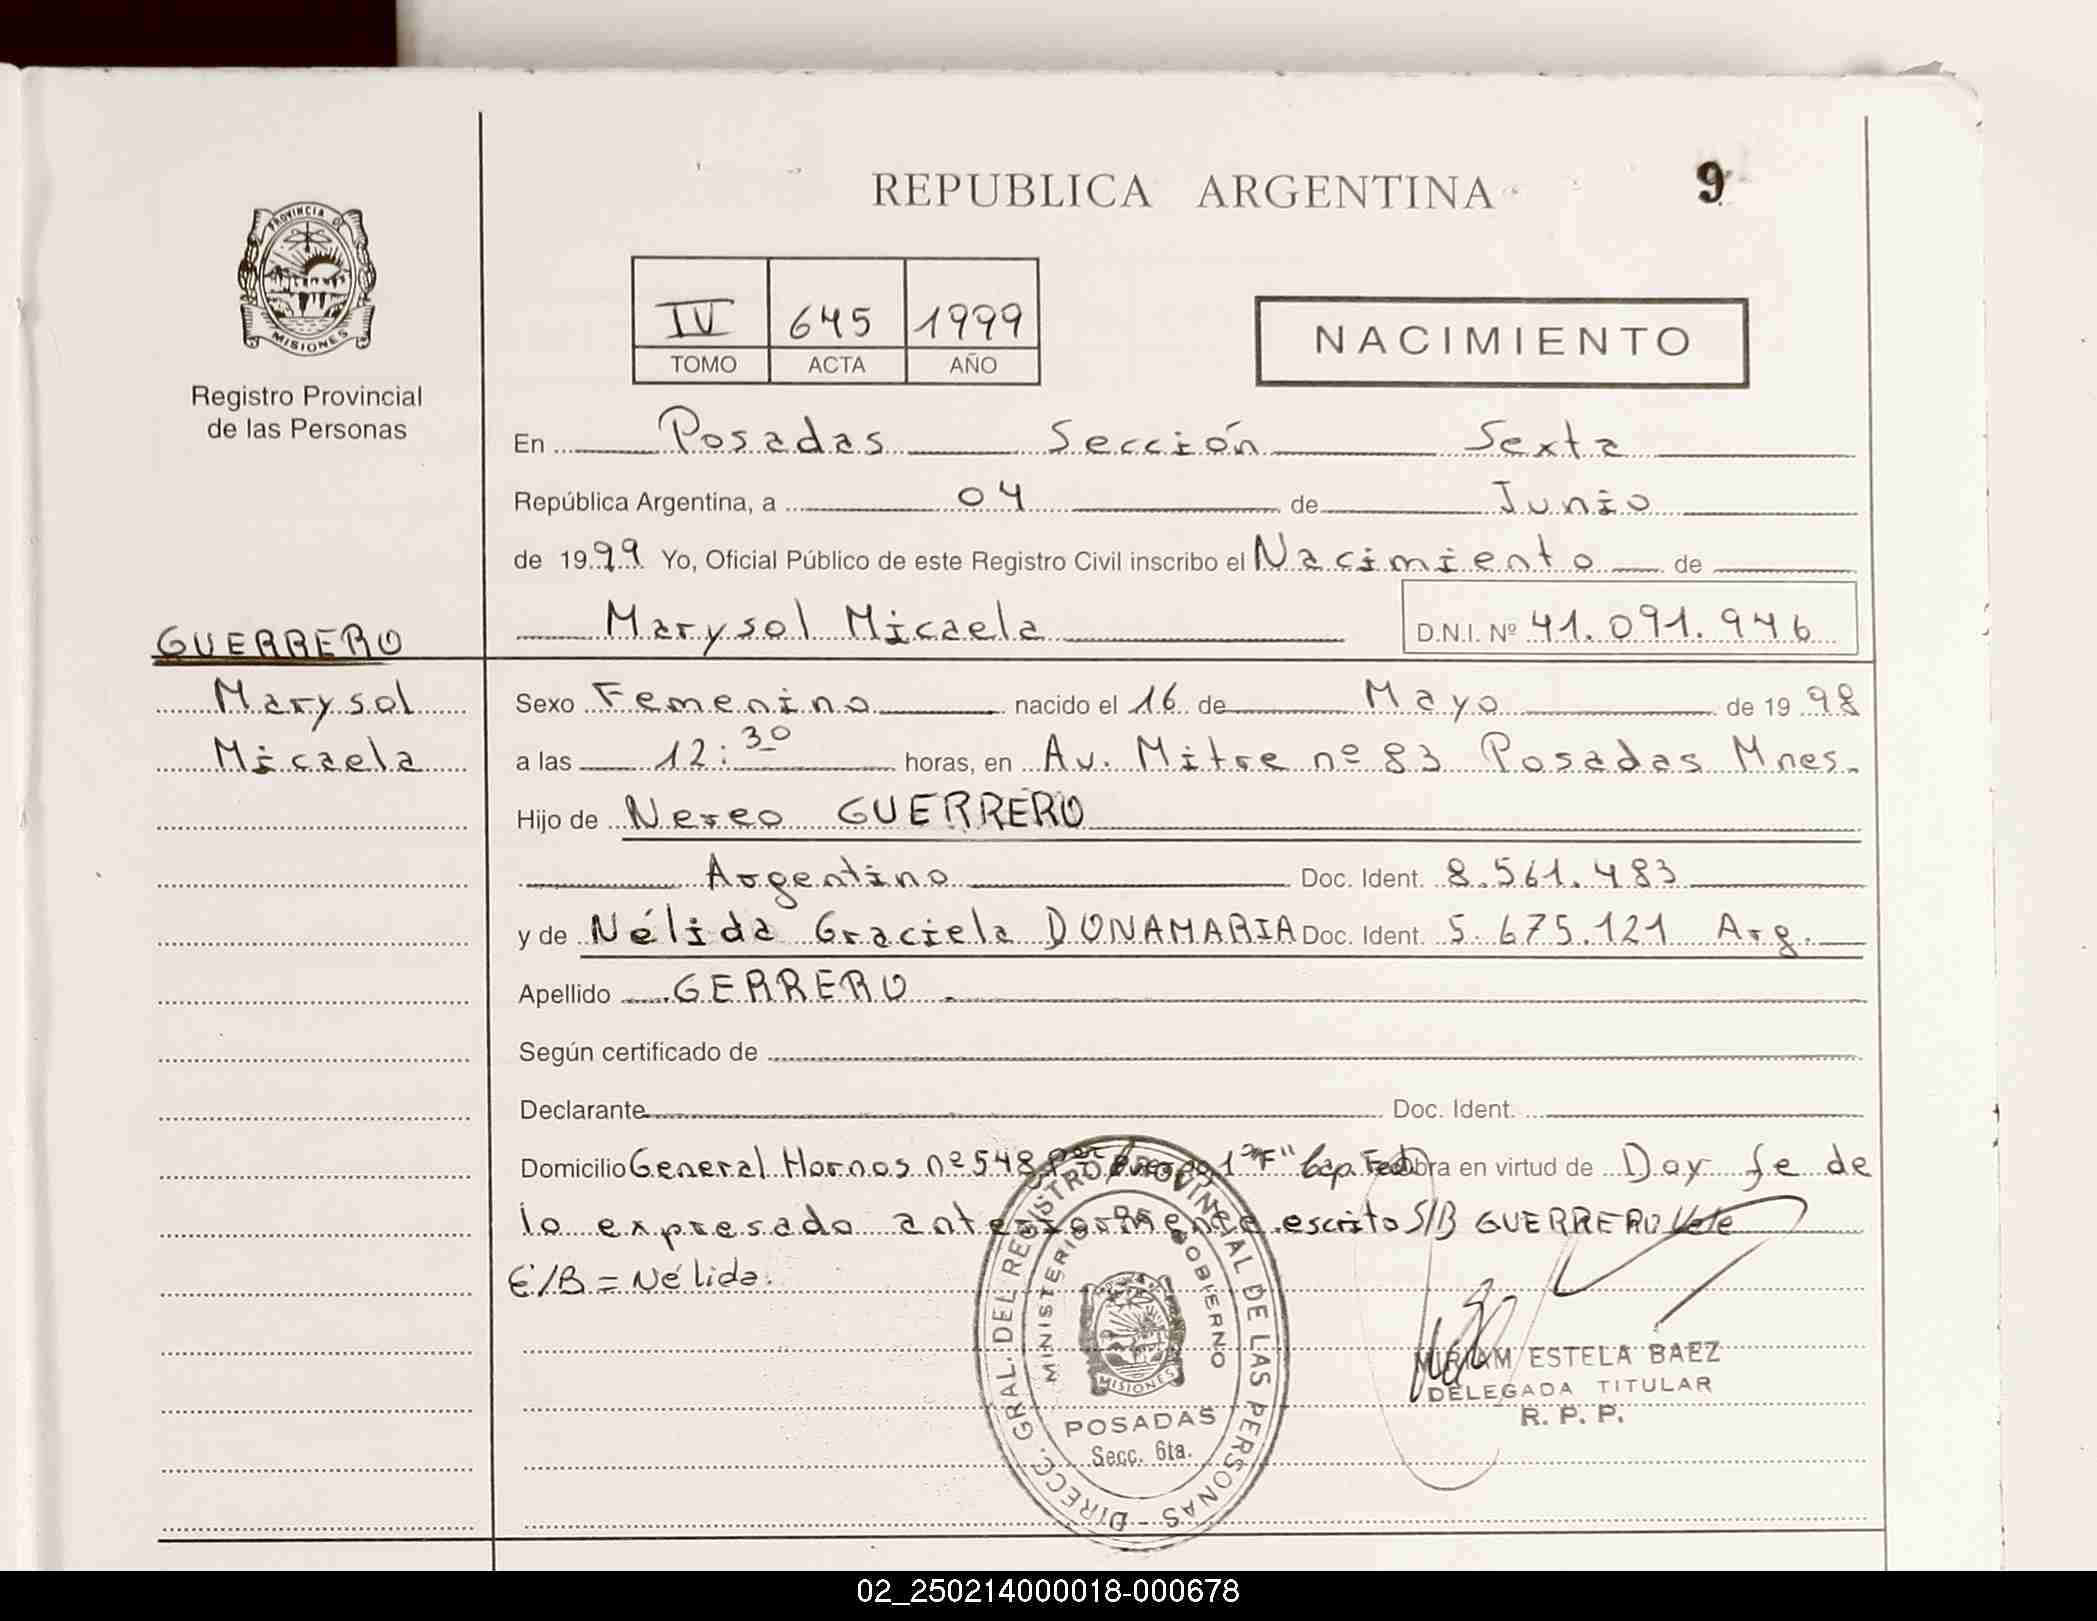 REPUBLICA ARGENTINA
9
PROVINCIA DE
MISIONES
Registro Provincial
de las Personas
IV 645 1999
TOMO ACTA AÑO
NACIMIENTO
En Posadas Sección Sexta
República Argentina, a 04 de Junio
de 1999 Yo, Oficial Público de este Registro Civil inscribo el Nacimiento de
Marysol Micaela D.N.I. Nº 41.091.946
GUERRERO
Marysol
Micaela
Sexo Femenino nacido el 16 de Mayo de 1998
a las 12:30 horas, en Av. Mitre nº 83 Posadas Mnes.
Hijo de Nereo GUERRERO
Argentino Doc. Ident. 8.561.483
y de Nélida Graciela DONAMARIA Doc. Ident. 5.675.121 Arg.
Apellido GERRERO
Según certificado de
Declarante Doc. Ident.
Domicilio General Hornos nº 548 1º "F" Cap. Fed. obra en virtud de Doy fe de
lo expresado anteriormente escrito S/B GUERRERO Vale
E/B = Nélida.
DIRECC. GRAL. DEL REGISTRO PROVINCIAL DE LAS PERSONAS
MINISTERIO DE GOBIERNO
MISIONES
POSADAS
Secc. 6ta.
MIRIAM ESTELA BAEZ
DELEGADA TITULAR
R. P. P.
02_250214000018-000678